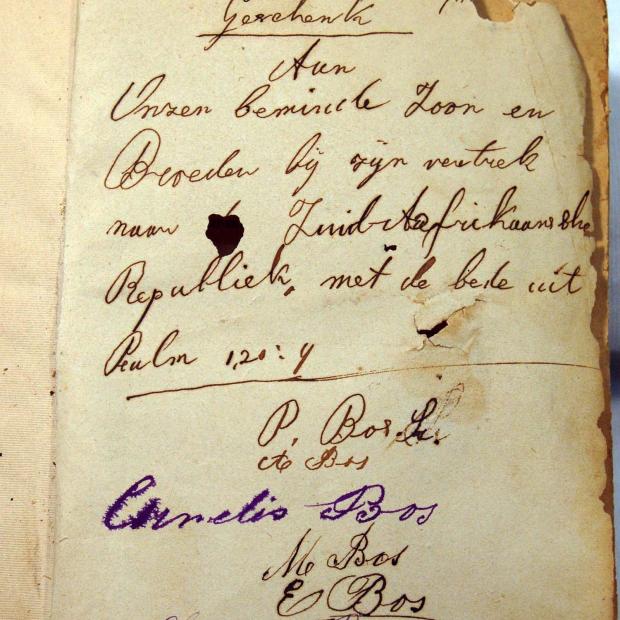 Geschenk
Aan
Onzen beminde Zoon en
Broeder bij zijn vertrek
naar Zuid-Afrikaansche
Republiek, met de bede uit
Psalm
P. Bos Sr.
A Bos
Cornelis Bos
M Bos
E Bos